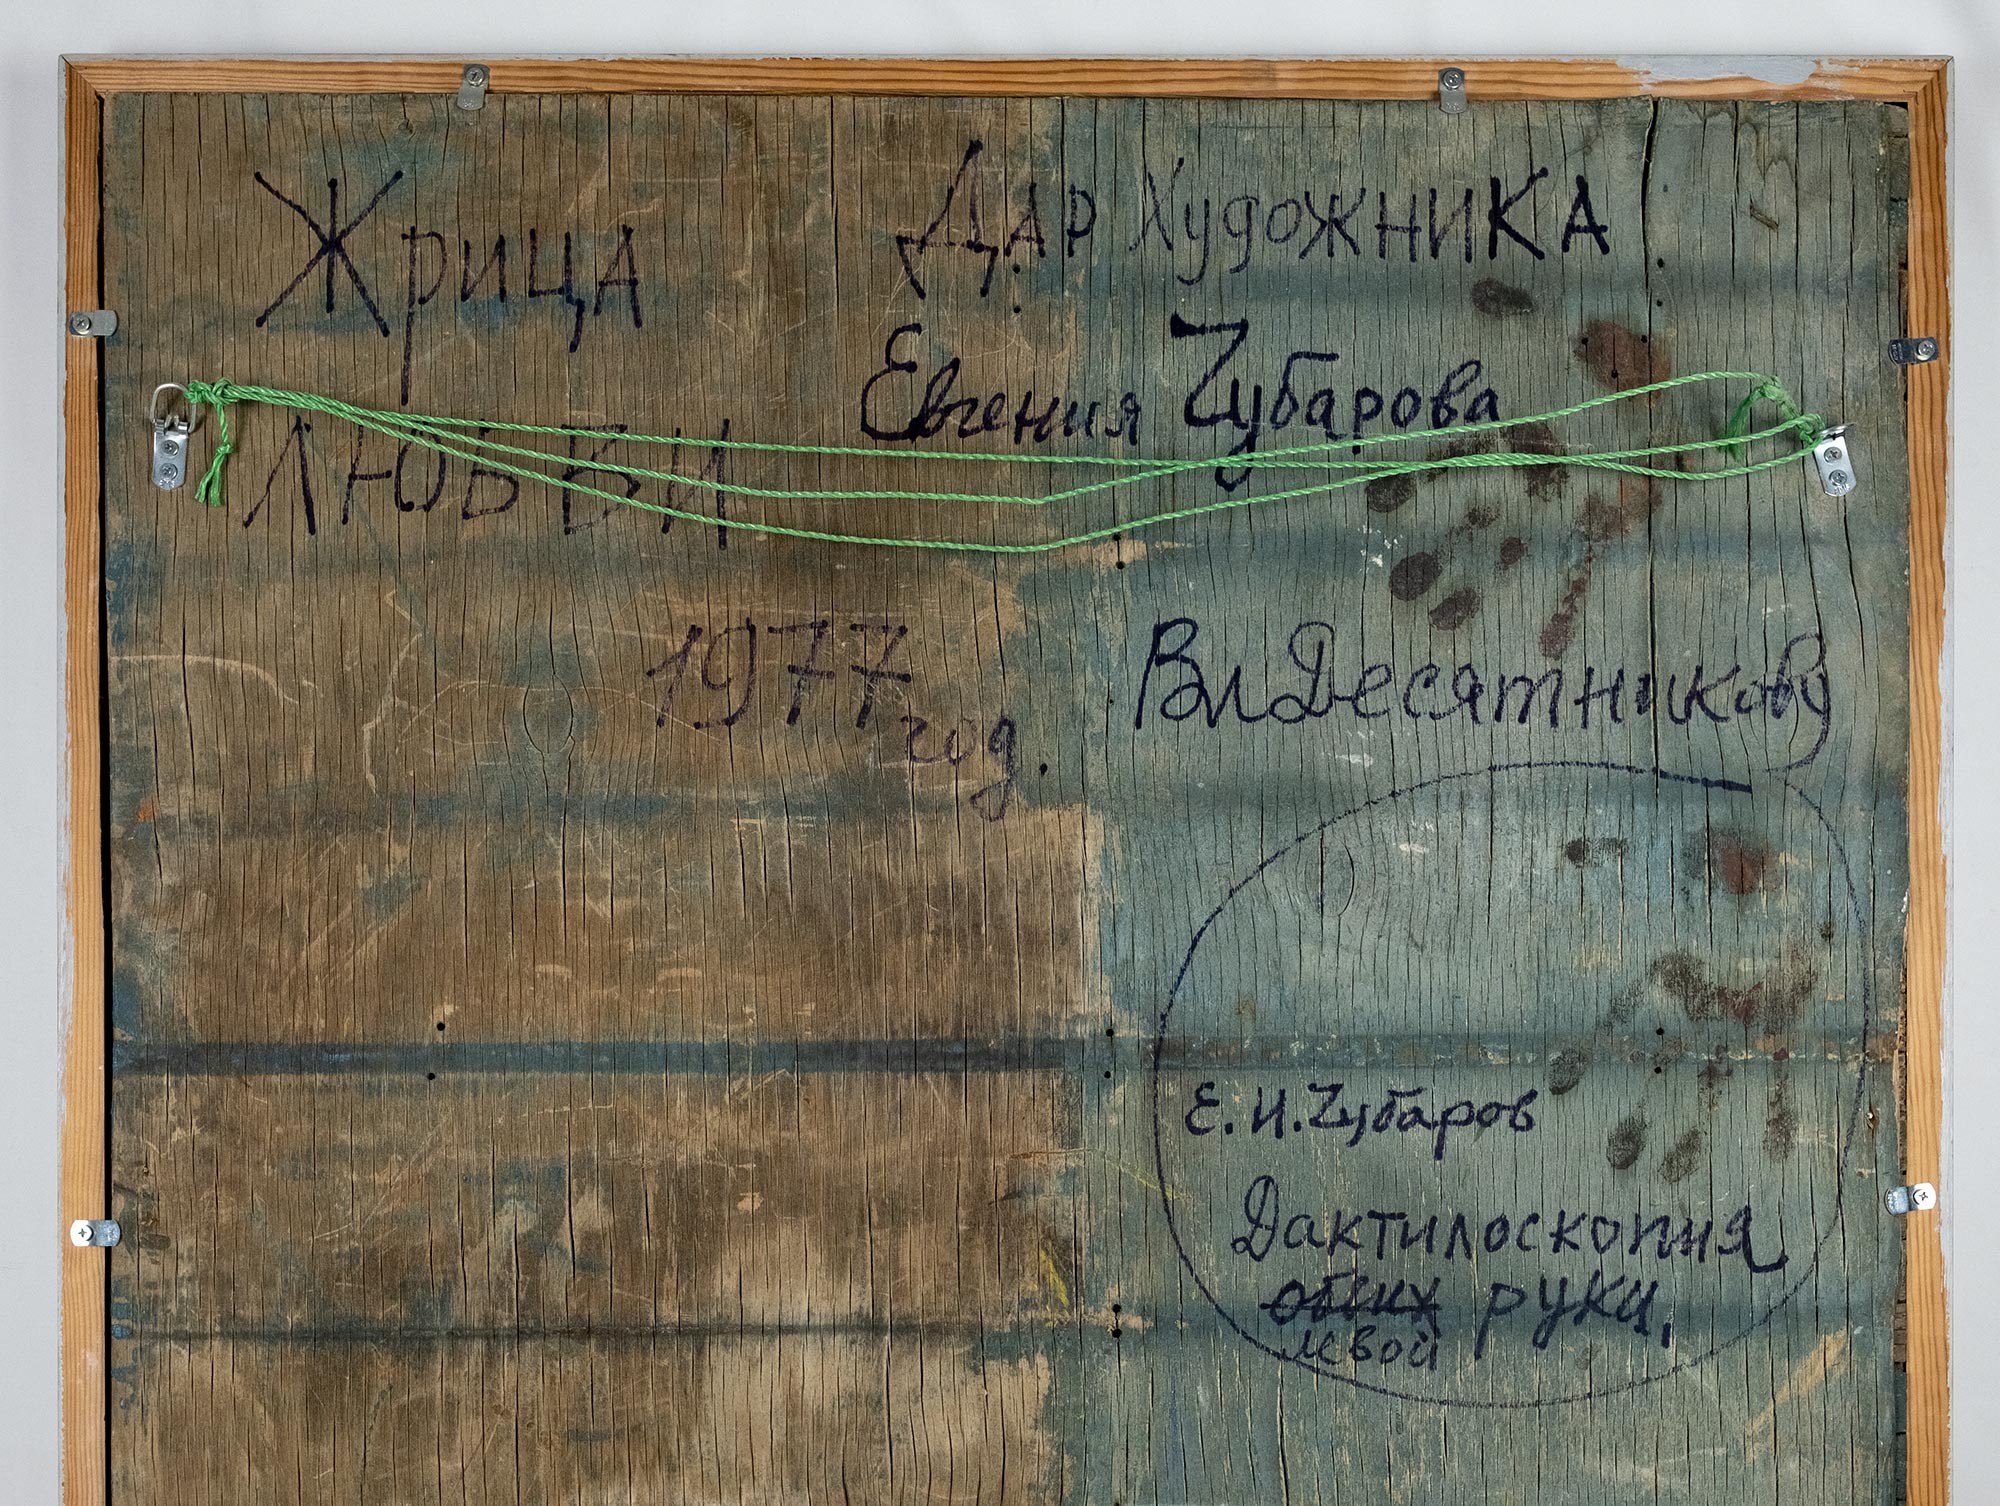 Жрица
любви
1977
год.
Дар Художника
Евгения Чубарова
Вл Десятникову
Е. И. Чубаров
Дактилоскопия
обеих руки,
левой